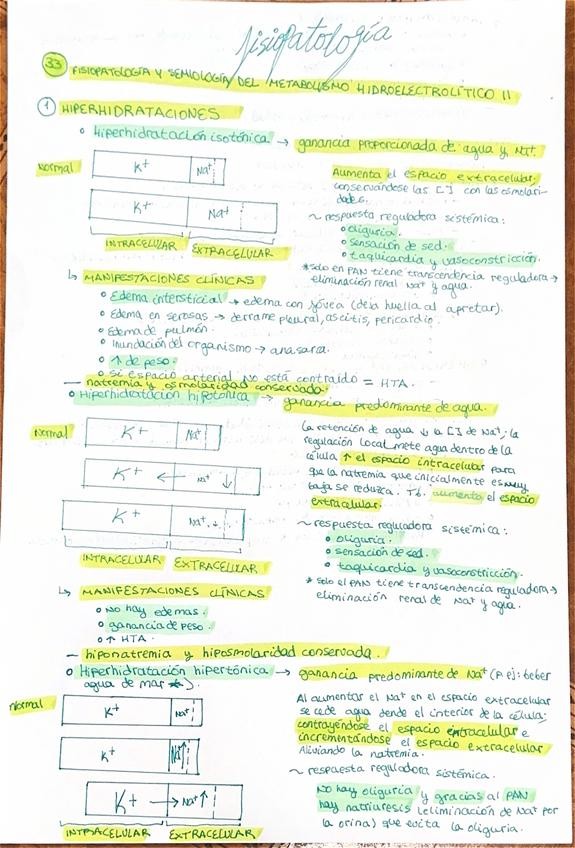 fisiopatología
33 FISIOPATOLOGÍA Y SEMIOLOGÍA DEL METABOLISMO HIDROELECTROLÍTICO II
1 HIPERHIDRATACIONES
Hiperhidratación isotónica. → ganancia proporcionada de agua y Na+.
Normal
K+ Na+
K+ Na+
INTRACELULAR EXTRACELULAR
Aumenta el espacio extracelular,
conservándose las [ ] con las osmolari-
dades.
~ respuesta reguladora sistémica:
oliguria.
sensación de sed.
taquicardia y vasoconstricción.
* solo en PAN tiene transcendencia reguladora →
eliminación renal Na+ y agua.
↳ MANIFESTACIONES CLÍNICAS
Edema intersticial → edema con fóvea (deja huella al apretar).
Edema en serosas → derrame pleural, ascitis, pericardio.
Edema de pulmón.
Inundación del organismo → anasarca.
↑ de peso.
Si espacio arterial no está contraído = HTA.
— natremia y osmolaridad conservado.
Hiperhidratación hipotónica → ganancia predominante de agua.
Normal
K+ Na+
K+ ← Na+ ↓
K+ Na+ ↓
INTRACELULAR EXTRACELULAR
La retención de agua ↓ la [ ] de Na+; la
regulación local mete agua dentro de la
célula ↑ el espacio intracelular para
que la natremia que inicialmente es muy
baja se reduzca. Tb. aumento el espacio
extracelular.
~ respuesta reguladora sistémica:
oliguria.
sensación de sed.
taquicardia y vasoconstricción.
* solo el PAN tiene transcendencia reguladora →
eliminación renal de Na+ y agua.
↳ MANIFESTACIONES CLÍNICAS
No hay edemas.
ganancia de peso.
↑ HTA.
— hiponatremia y hiposmolaridad conservada.
Hiperhidratación hipertónica → ganancia predominante de Na+ (p.ej: beber
agua de mar).
Normal
K+ Na+
K+ Na+ ↑
K+ → Na+ ↑
INTRACELULAR EXTRACELULAR
Al aumentar el Na+ en el espacio extracelular
se cede agua dende el interior de la célula;
contrayéndose el espacio extracelular e
incrementándose el espacio extracelular
Aliviando la natremia.
~ respuesta reguladora sistémica.
No hay oliguria y gracias al PAN
hay natriuresis (eliminación de Na+ por
la orina) que evita la oliguria.